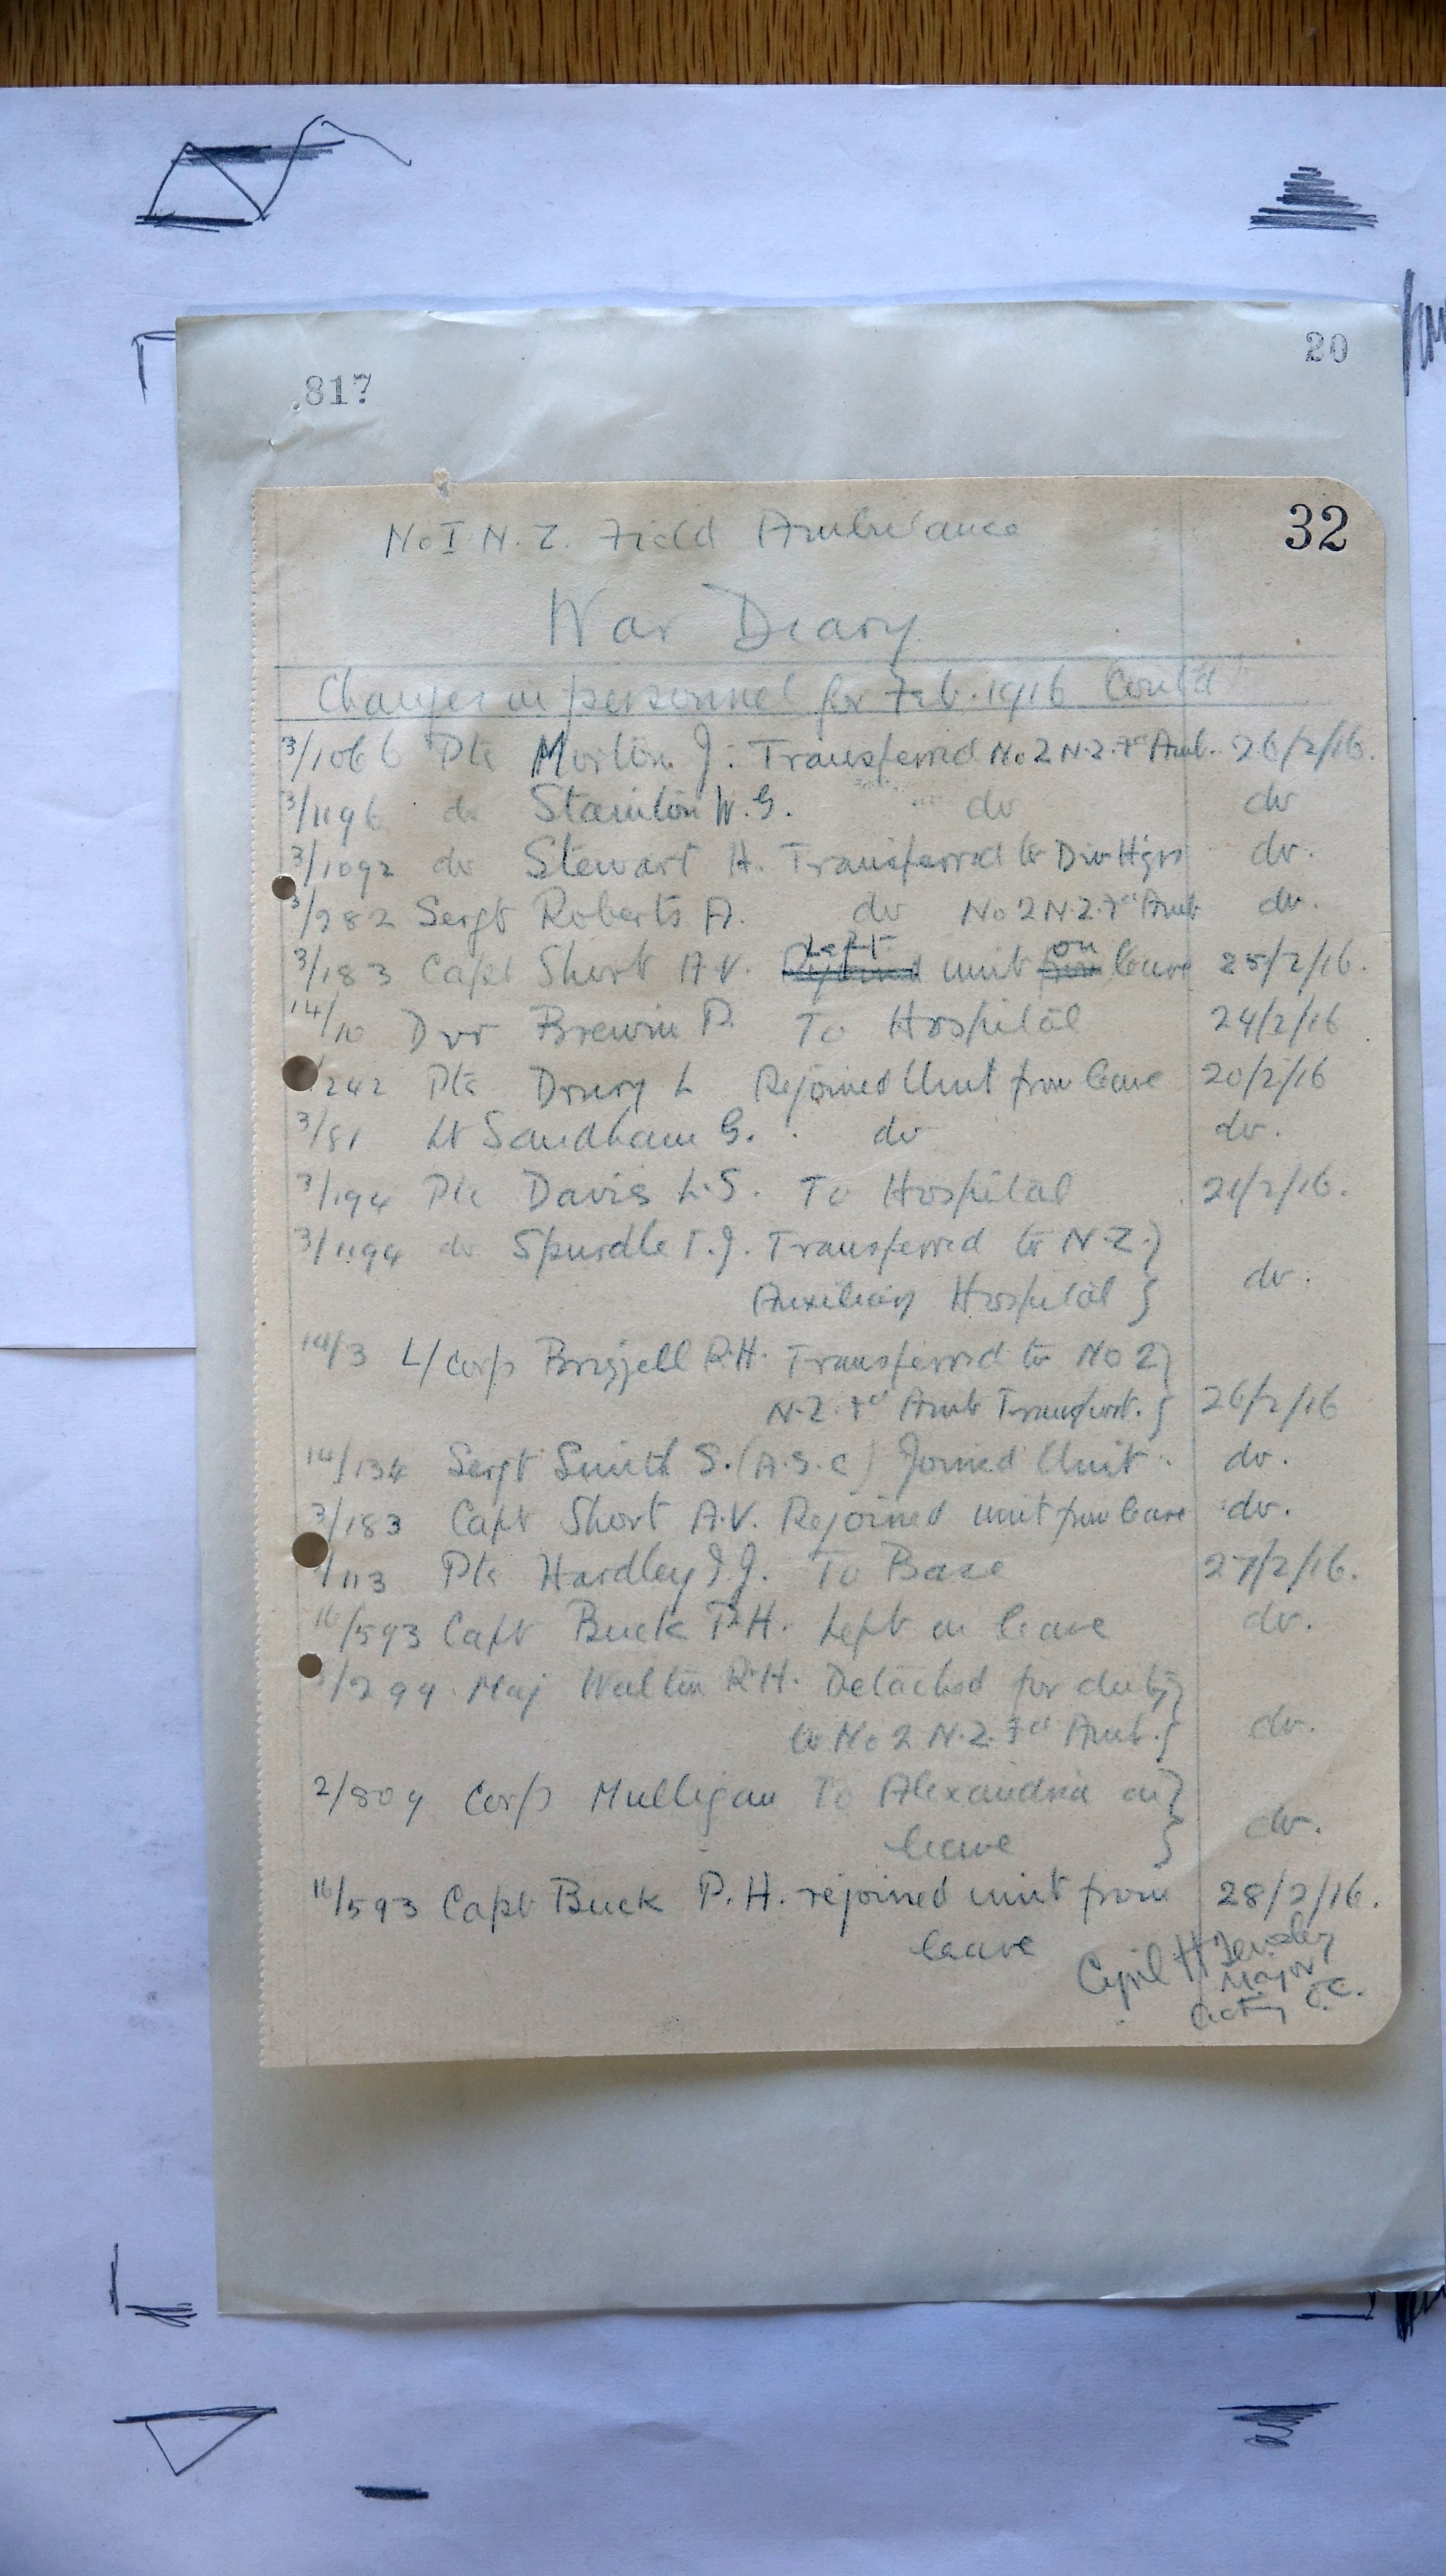 20
817
32
No I N.Z. Field Ambulance
War Diary
Changes in personnel for Feb. 1916 Cont'd
3/1066 Pte Morton J. Transferred No 2 N.Z. Fd Amb. 26/2/16.
3/1196 do Stainton W.G. do do
3/1092 do Stewart H. Transferred to Div Hqrs do.
3/282 Sergt Roberts A. do No 2 N.Z. Fd Amb do.
Left on
3/183 Capt Short A.V. Rejoined unit from leave 25/2/16.
14/10 Dvr Brewin P. To Hospital 24/2/16
/242 Pte Drury L Rejoined Unit from leave 20/2/16
3/81 Lt Sandham G. do do.
3/194 Pte Davis L.S. To Hospital 21/2/16.
3/1194 do Spurdle T.J. Transferred to N.Z.
Auxiliary Hospital do.
14/3 L/Corp Brizzell R.H. Transferred to No 2
N.Z. Fd Amb Transport. 26/2/16
14/134 Sergt Smith S. (A.S.C) Joined Unit. do.
3/183 Capt Short A.V. Rejoined unit from leave do.
/113 Pte Hardley J.J. To Base 27/2/16.
16/593 Capt Buck P.H. Left on leave do.
/299 Maj Walton R.H. Detached for duty
to No 2 N.Z. Fd Amb. do.
2/809 Corp Mulligan To Alexandria on
leave do.
16/593 Capt Buck P.H. rejoined unit from 28/2/16.
leave
Cyril H Tewsley
Major
Acting O.C.